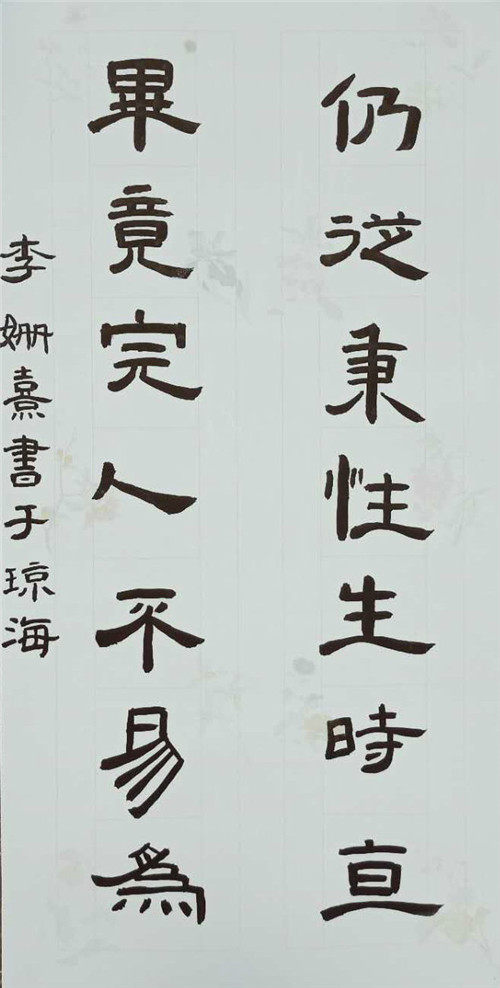 仍從秉性生時直
畢竟完人不易為
李姍熹書于琼海